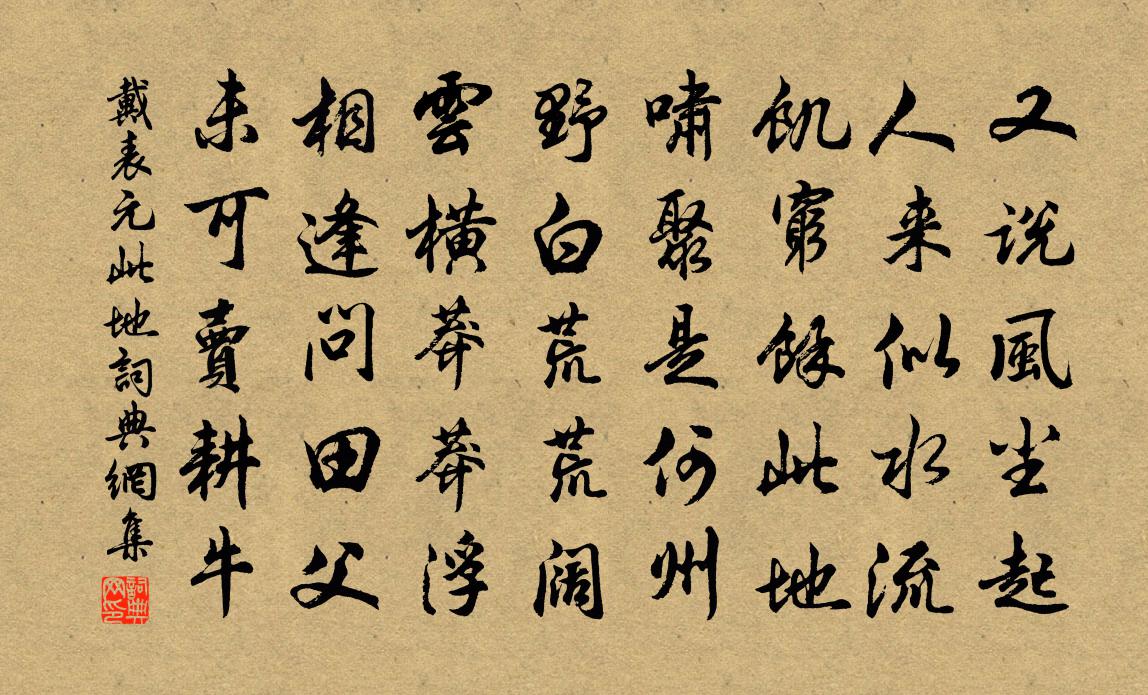 又説風尘起
人来似水流
飢窮餘此地
嘯聚是何州
野白荒荒阔
雲横莽莽浮
相逢問田父
未可賣耕牛
戴表元此地詞典網集
詞典网印